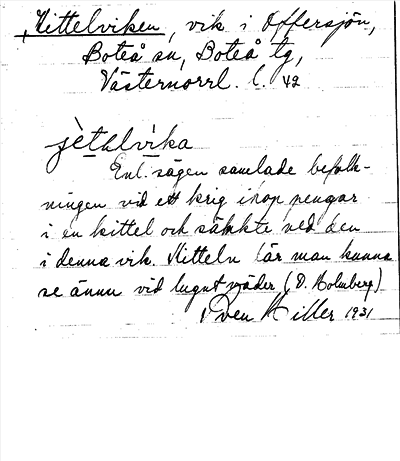 Kittelviken, vik i Offersjön,
Boteå sn, Boteå tg,
Västernorrl. l. 42
jètəlvìka
Enl. sägen samlade befolk-
ningen vid ett krig ihop pengar
i en kittel och sänkte ned den
i denna vik. Kitteln lär man kunna
se ännu vid lugnt väder (D. Holmberg)
Sven Hiller 1931